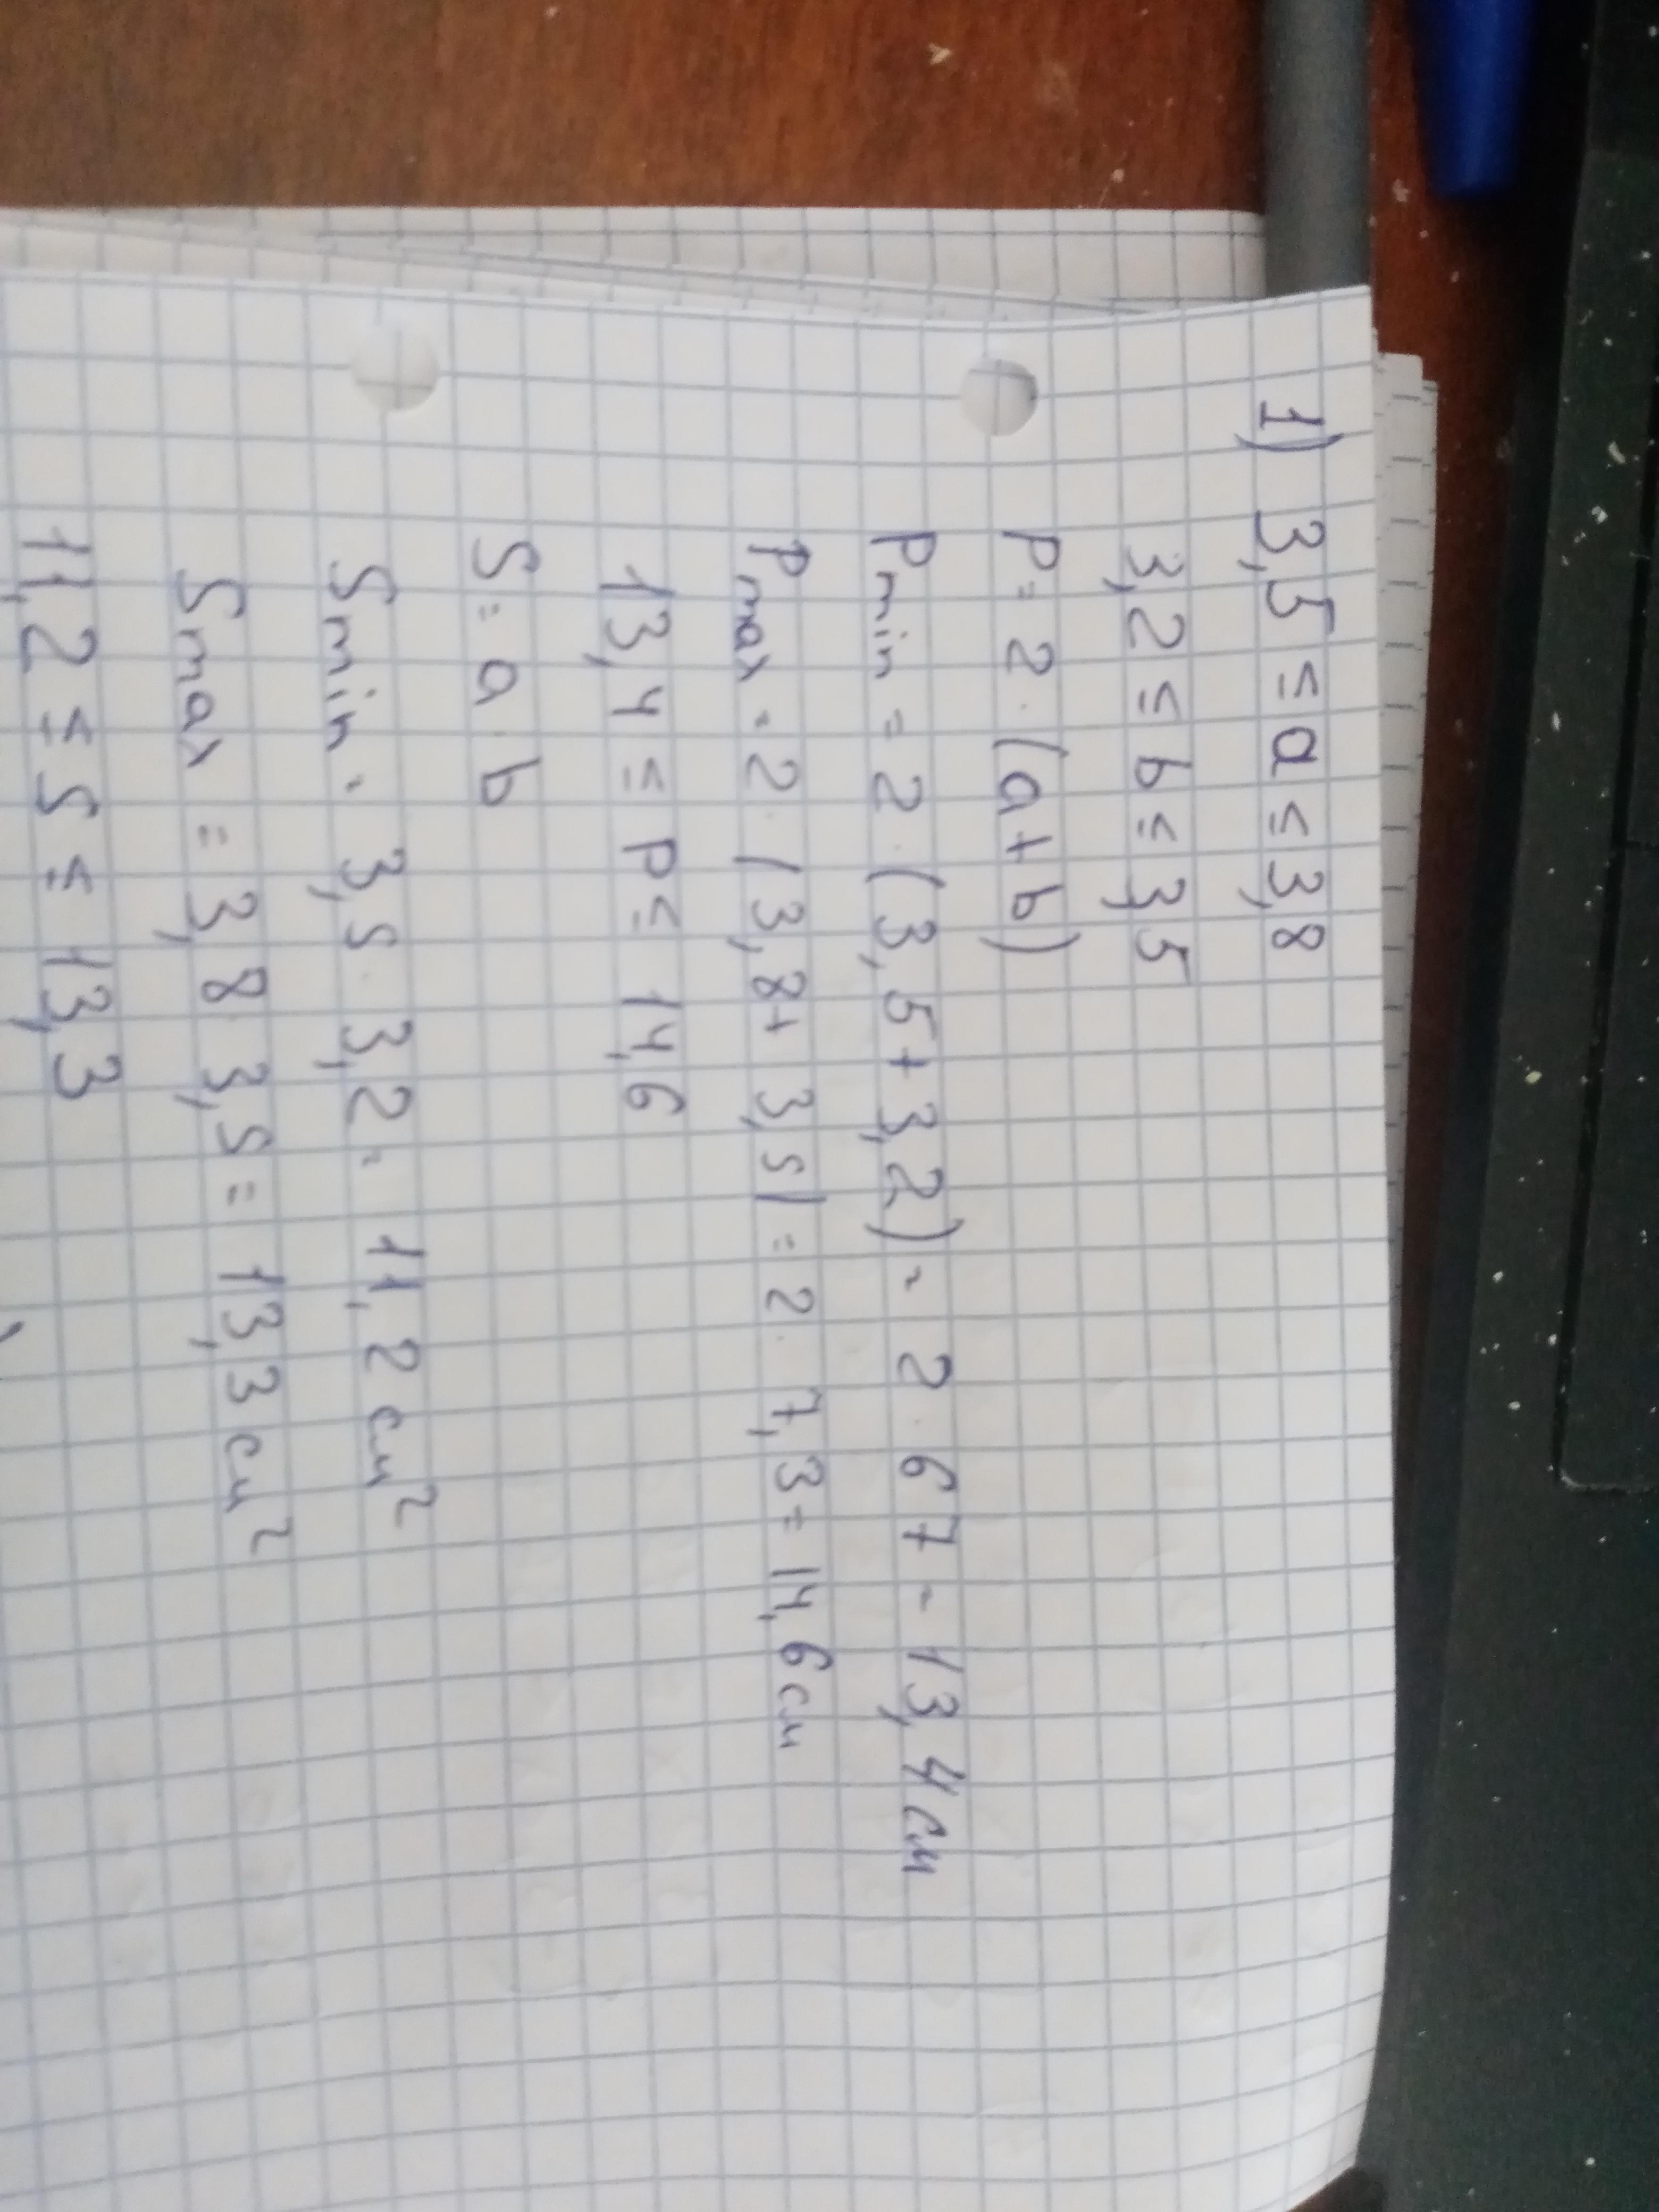 1) 3,5 ≤ a ≤ 3,8
3,2 ≤ b ≤ 3,5
P = 2 · (a + b)
Pmin = 2 · (3,5 + 3,2) = 2 · 6 7 = 13,4 см
Pmax = 2 · (3,8 + 3,5) = 2 · 7,3 = 14,6 см
13,4 ≤ P ≤ 14,6
S = a · b
Smin = 3,5 · 3,2 = 11,2 см²
Smax = 3,8 · 3,5 = 13,3 см²
11,2 ≤ S ≤ 13,3